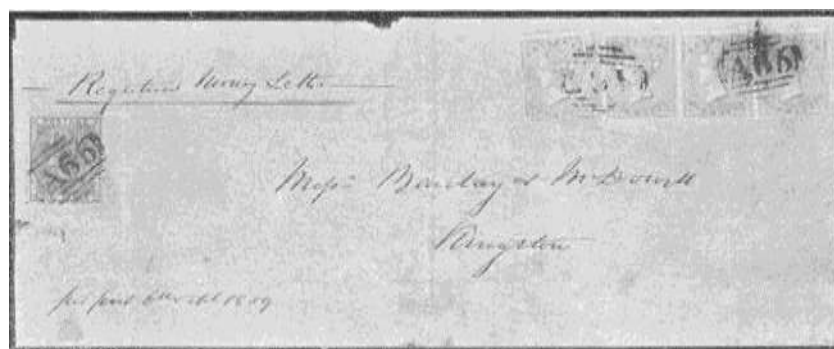 Registered Money Letter
A66
A66
Messrs Barclay & McDowell
Kingston
per post 6th